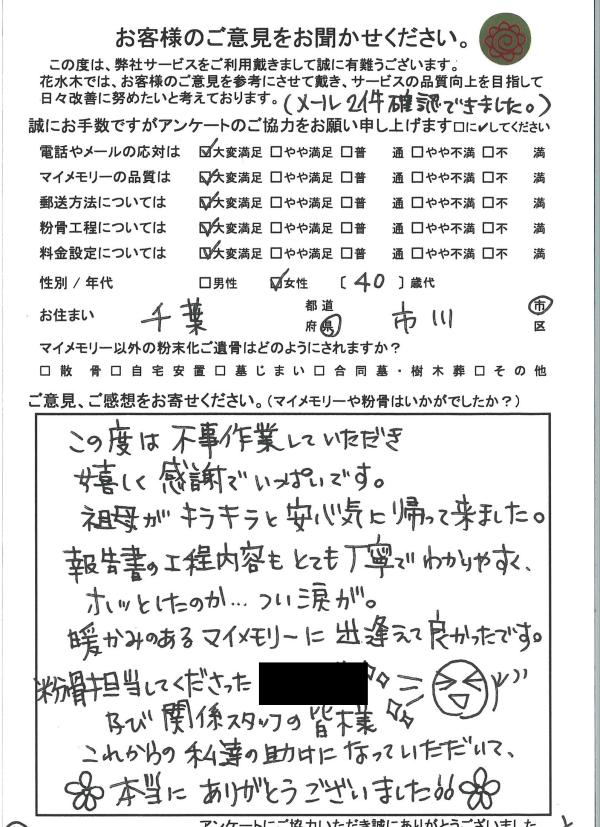 お客様のご意見をお聞かせください。
この度は、弊社サービスをご利用戴きまして誠に有難うございます。
花水木では、お客様のご意見を参考にさせて戴き、サービスの品質向上を目指して
日々改善に努めたいと考えております。(メール21件確認できました。)
誠にお手数ですがアンケートのご協力をお願い申し上げます□に✔してください
電話やメールの応対は ☑大変満足 □やや満足 □普 通 □やや不満 □不 満
マイメモリーの品質は ☑大変満足 □やや満足 □普 通 □やや不満 □不 満
郵送方法については ☑大変満足 □やや満足 □普 通 □やや不満 □不 満
粉骨工程については ☑大変満足 □やや満足 □普 通 □やや不満 □不 満
料金設定については ☑大変満足 □やや満足 □普 通 □やや不満 □不 満
性別 / 年代 □男性 ☑女性 〔 40 〕歳代
お住まい 千葉 都道府県 市川 市区
マイメモリー以外の粉末化ご遺骨はどのようにされますか?
□散 骨 □自宅安置 □墓じまい □合同墓・樹木葬 □その他
ご意見、ご感想をお寄せください。(マイメモリーや粉骨はいかがでしたか?)
この度は 不事作業していただき
嬉しく 感謝でいっぱいです。
祖母が キラキラと 安心気に帰って来ました。
報告書の工程内容も とても丁寧で わかりやすく、
ホッとしたのか… つい涙が。
暖かみのある マイメモリーに 出逢えて良かったです。
粉骨担当してくださった
及び 関係スタッフの 皆様
これからの 私達の助けに なっていただいて、
本当に ありがとうございました!!
アンケートにご協力いただき誠にありがとうございました